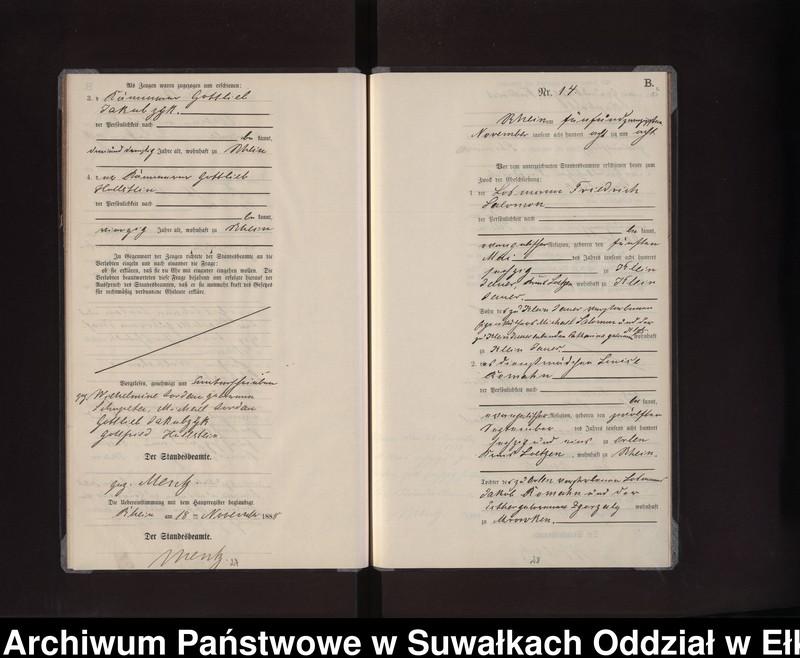 Als Zeugen waren zugezogen und erschienen:
3. der Kämmerer Gottlieb
Jakubzyk.
der Persönlichkeit nach
be kannt,
Jahre alt, wohnhaft zu Rhein
4. der Kämmerer Gottlieb
der Persönlichkeit nach
be kannt,
vierzig Jahre alt, wohnhaft zu Rhein
In Gegenwart der Zeugen richtete der Standesbeamte an die
Verlobten einzeln und nach einander die Frage:
ob sie erklären, daß sie die Ehe mit einander eingehen wollen. Die
Verlobten beantworteten diese Frage bejahend und erfolgte hierauf der
Ausspruch des Standesbeamten, daß er sie nunmehr kraft des Gesetzes
für rechtmäßig verbundene Eheleute erkläre.
Vorgelesen, genehmigt und unterschrieben
gez. Wilhelmine Jordan geborene
Michael Jordan
Gottlieb Jakubzyk
Gottfried
Der Standesbeamte.
gez. Mentz.
Die Uebereinstimmung mit dem Hauptregister beglaubigt.
Rhein am 18 ten November 1888
Der Standesbeamte.
Mentz.
B.
Nr. 14.
Rhein am fünfundzwanzigsten
November tausend acht hundert acht zig und acht
Vor dem unterzeichneten Standesbeamten erschienen heute zum
Zweck der Eheschließung:
1. der Losmann Friedrich
Salomon
der Persönlichkeit nach
be kannt,
evangelischer Religion, geboren den fünften
Mai des Jahres tausend acht hundert
sechzig zu Klein
Jauer, Kreis Loetzen wohnhaft zu Klein
Jauer.
Sohn des zu Klein Jauer verstorbenen
Michael Salomon und der
zu Klein Jauer lebenden Catharine geborene wohnhaft
zu Klein Jauer.
2. das Dienstmädchen Louise
Romahn
der Persönlichkeit nach
be kannt,
evangelischer Religion, geboren den zwölften
September des Jahres tausend acht hundert
sechzig und eins zu Orlen
Kreis Loetzen, wohnhaft zu Rhein.
Tochter des zu Orlen verstorbenen Losmann
Jakob Romahn und der
Esther geborenen wohnhaft
zu Mrowken.
28
Archiwum Państwowe w Suwałkach Oddział w Ełk